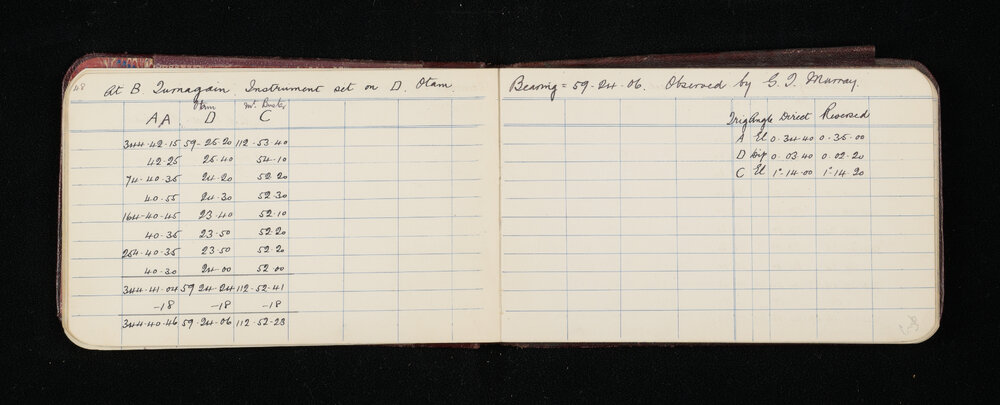 48 At B Turnagain. Instrument set on D. Otam.
Otam Mt. Buster
AA D C
344-42-15 59-25-20 112-53-40
42-25 25-40 54-10
74-40-35 24-20 52-20
40-55 24-30 52-30
164-40-45 23-40 52-10
40-35 23-50 52-20
254-40-35 23-50 52-20
40-30 24-00 52-00
344-41-04 59 24-24 112-52-41
-18 -18 -18
344-40-46 59-24-06 112-52-23
Bearing = 59-24-06. Observed by G. T. Murray.
Trig Angle Direct Reversed
A El 0-34-40 0-35-00
D Dip 0-03-40 0-02-20
C El 1°-14-00 1°-14-20